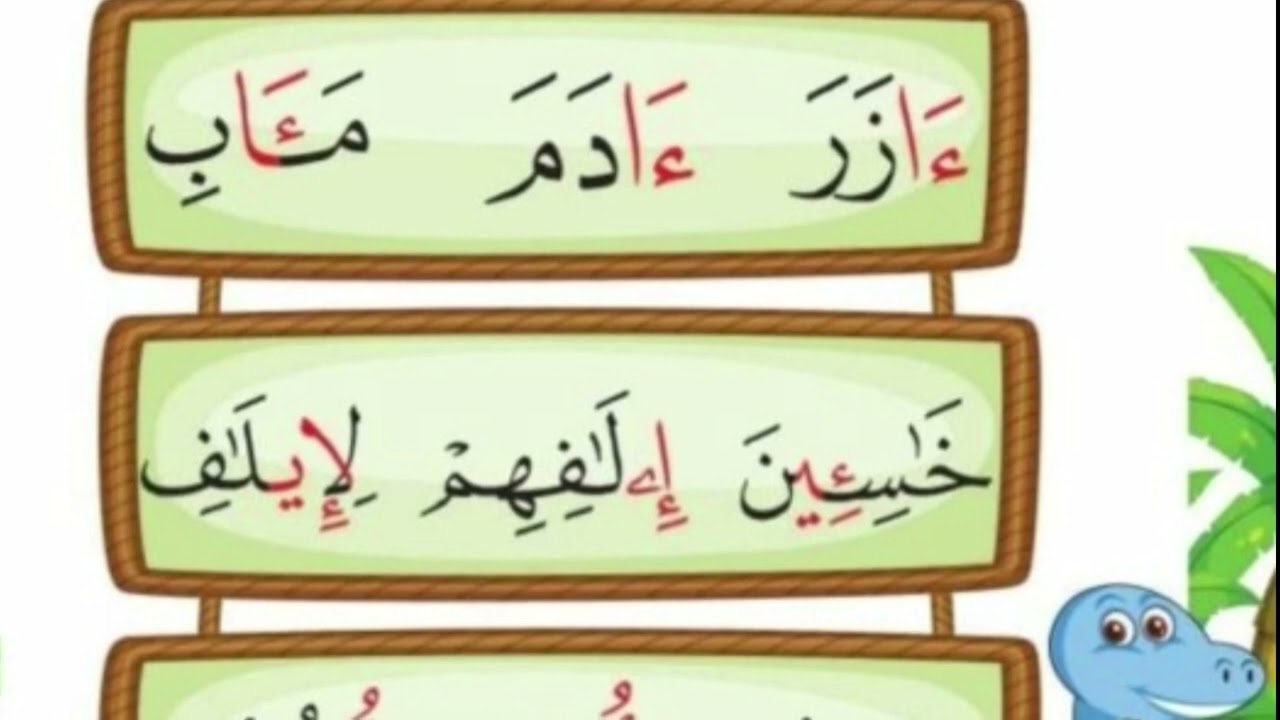 ءَازَرَ ءَادَمَ مَـَٔابِ
خَٰسِـِٔينَ إِۦلَٰفِهِمْ لِإِيلَٰفِ